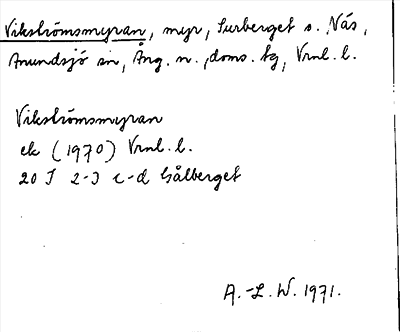 Vikströmsmyran, myr, Surberget s. Näs,
Anundsjö sn, Ång. n., doms. hg, Vrnl. l.
Vikströmsmyran
ek (1970) Vrnl. l.
20 I 2-3 c-d Gålberget
A.-L. W. 1971.